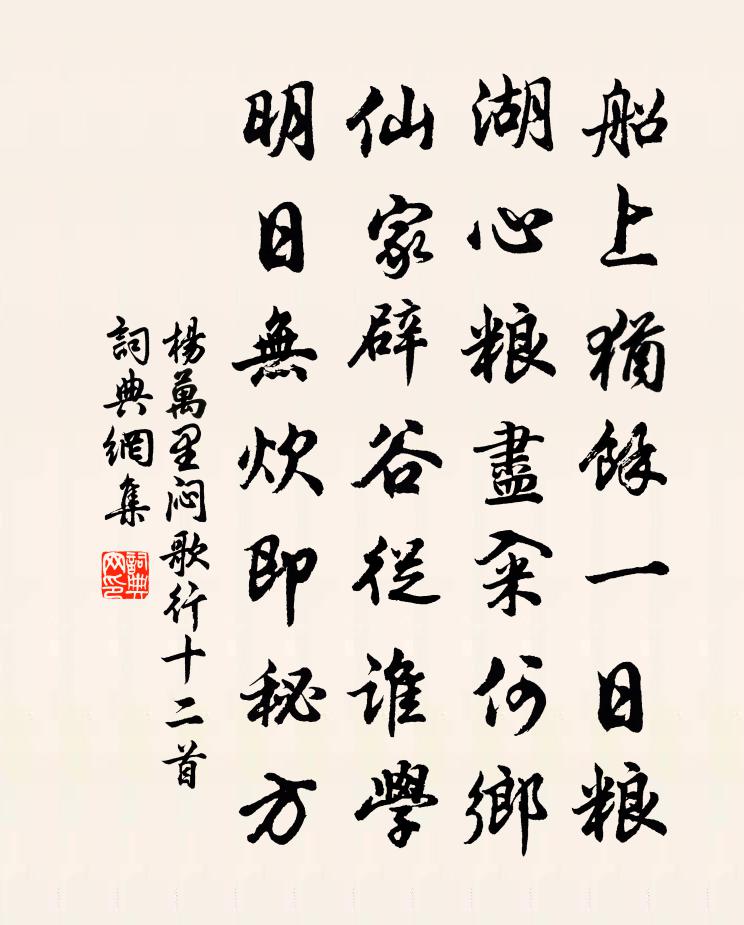 船上猶餘一日粮
湖心粮盡籴何鄉
仙家辟谷從誰學
明日無炊即秘方
楊萬里闷歌行十二首
詞典網集
詞典
网印